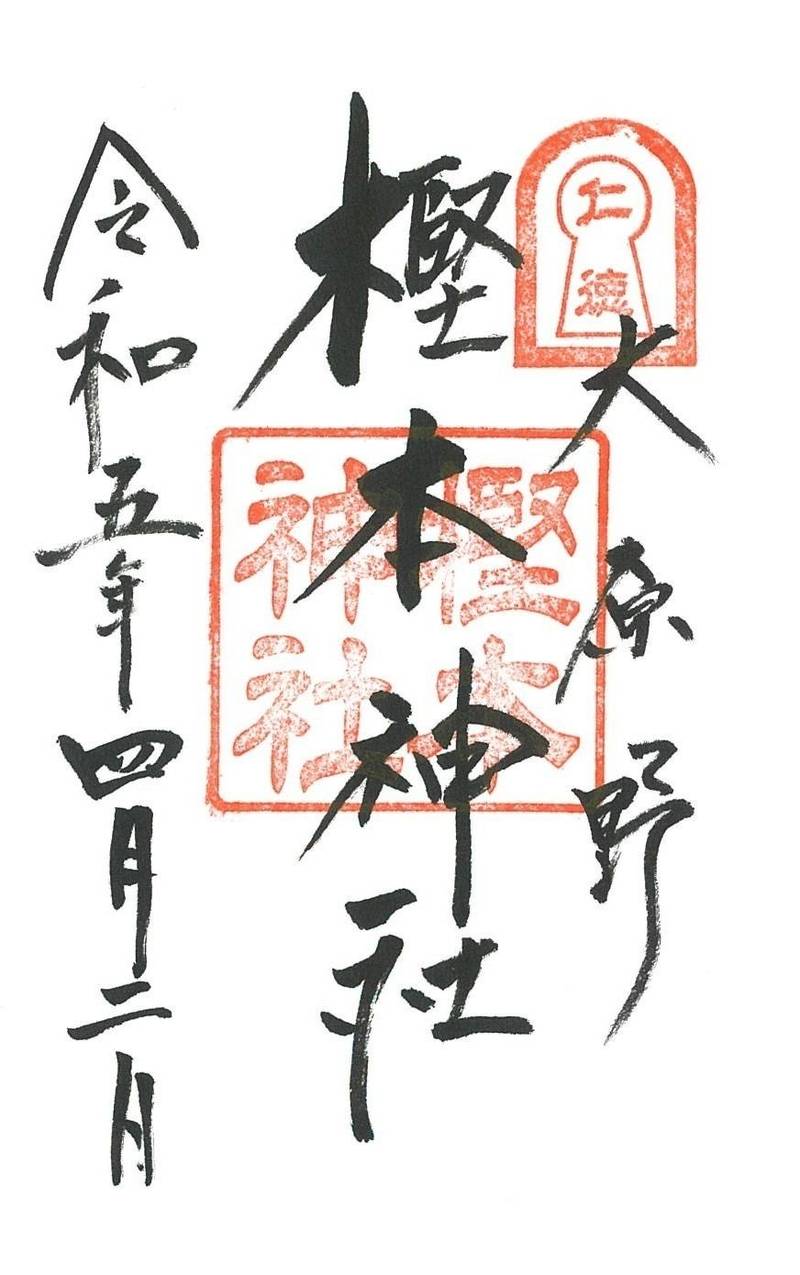 仁徳
大原野
樫本神社
樫本神社
令和五年四月二日